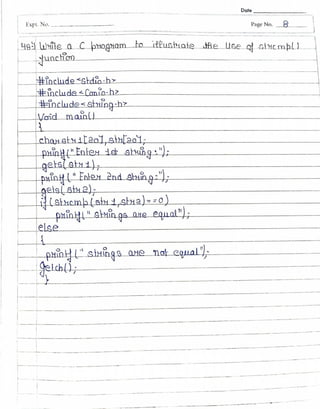 Date
Expt. No.
Page No. 8
48) Write a C program to illustrate the use of strcmp()
function
#include<stdio.h>
#include<Conio.h>
#include<string.h>
Void main()
{
char str1[20], str[20];
printf("Enter 1st string:");
gets(str1);
printf("Enter 2nd string:");
gets(str2);
if (strcmp(str1,str2)==0)
printf("strings are equal");
else
{
printf("strings are not equal");
getch();
}